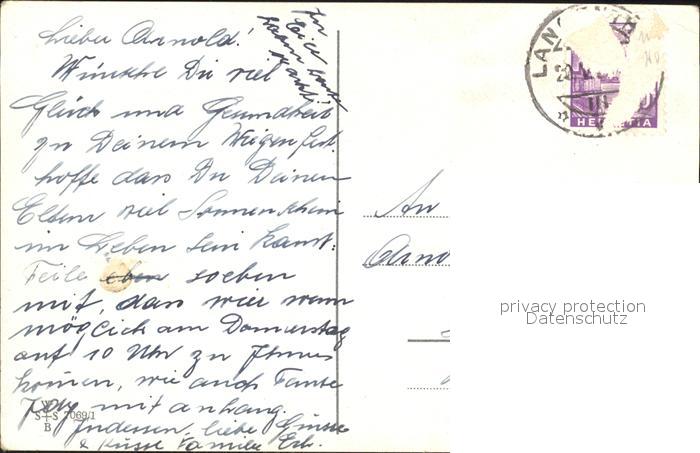 Lieber Arnold!
Wünsche Dir viel
Glück und Gesundheit
zu Deinem Wiegenfest.
hoffe dass Du Deinen
Eltern viel Sonnenschein
im Leben sein kannst.
Teile eben soeben
mit, dass wir wenn
möglich am Donnerstag
auf 10 Uhr zu Ihnen
kommen, wie auch Tante
mit anhang.
Indessen liebe Grüsse
& Küsse Familie
An
Arno
LAN
HELVETIA
III
W
S+S 7069/1
B
privacy protection
Datenschutz